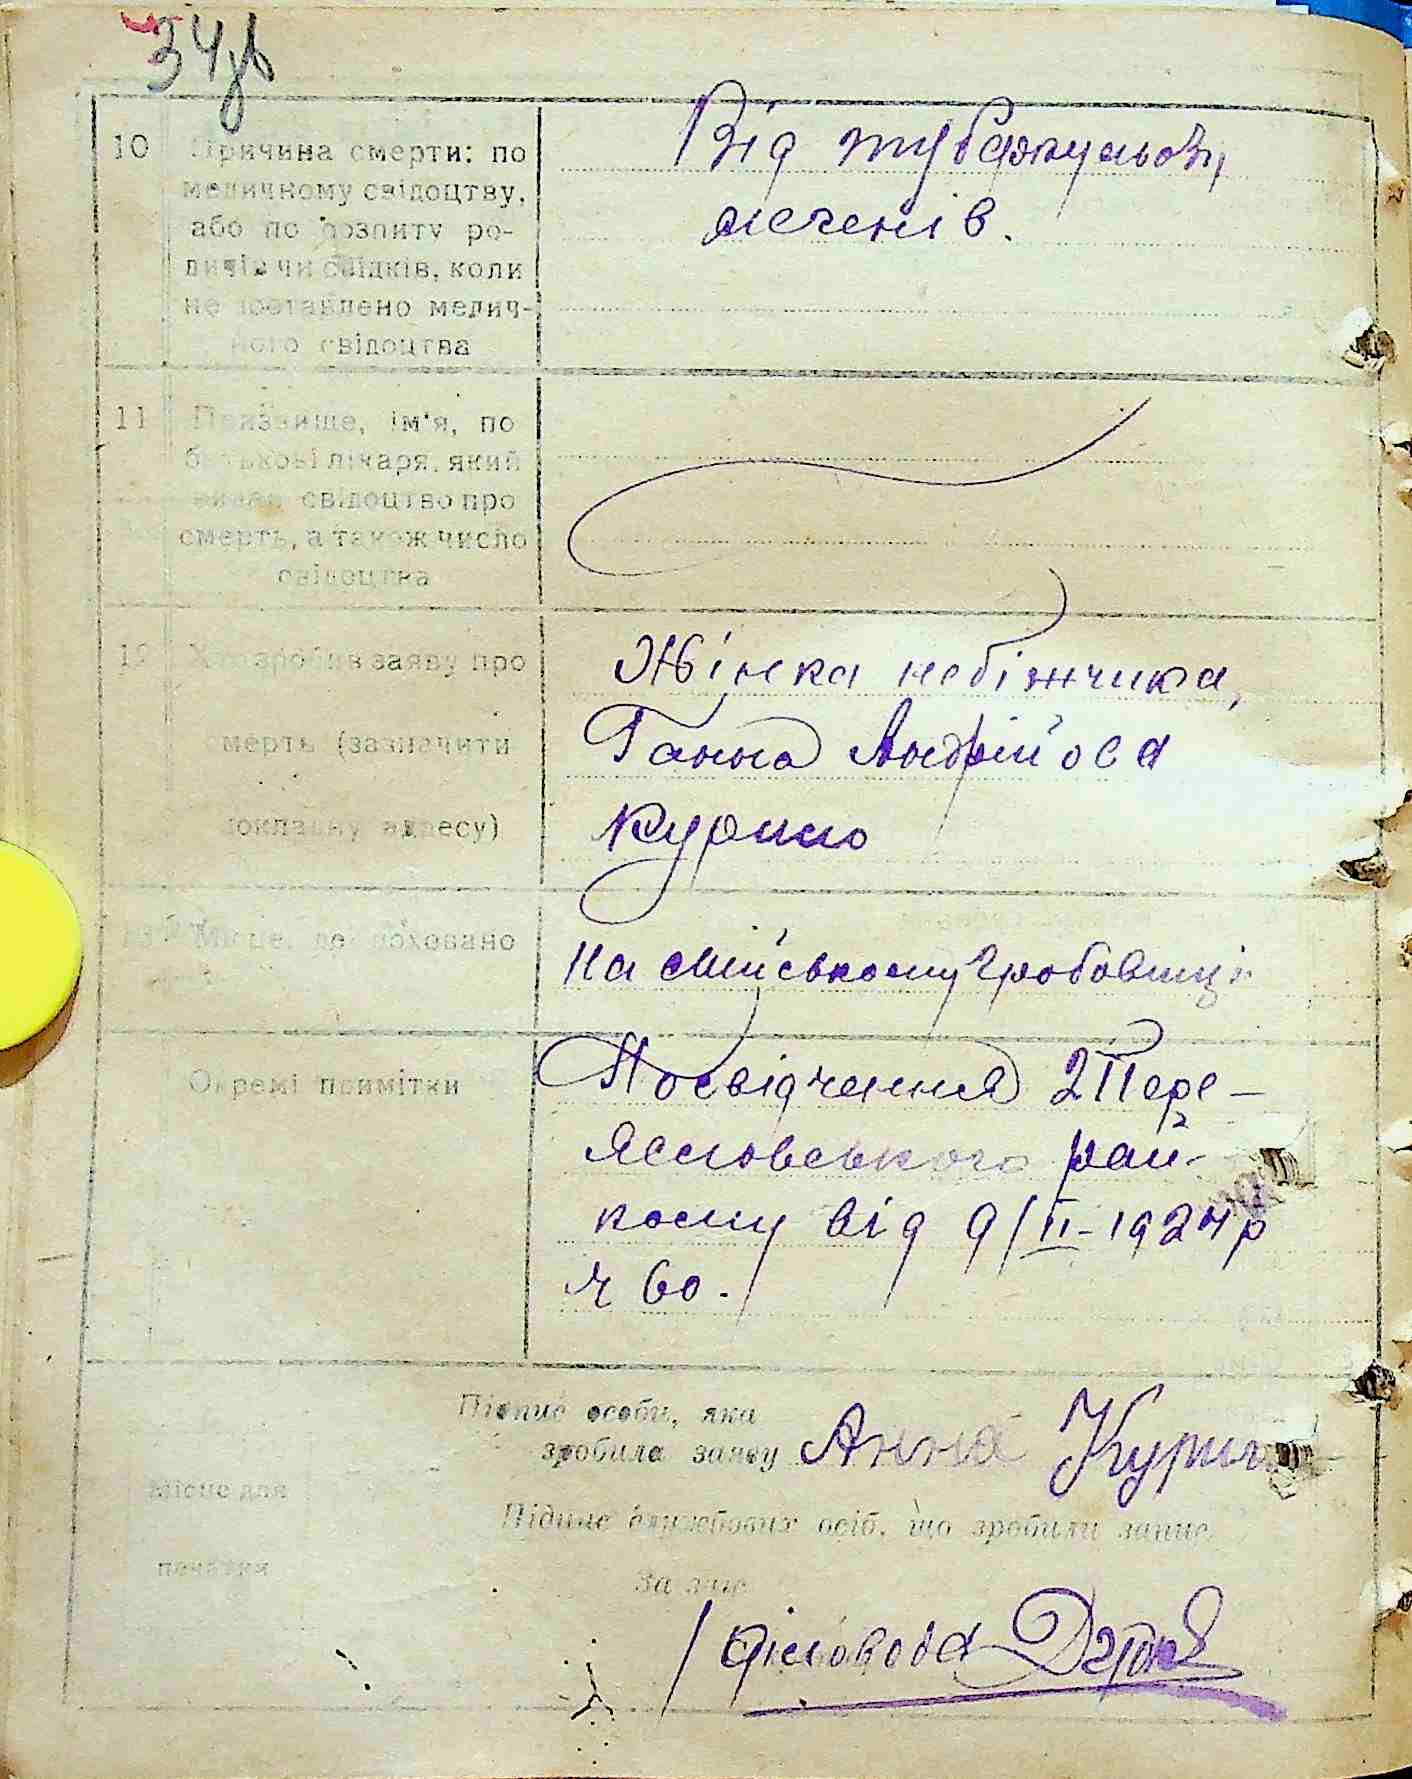 34зв
10 Причина смерти: по
медичному свідоцтву,
або по розпиту ро-
дичів чи свідків, коли
не поставлено медич-
ного свідоцтва
Від туберкульозу
легенів.
11 Прізвище, ім'я, по
батькові лікаря, який
видав свідоцтво про
смерть, а також число
свідоцтва
12 Хто зробив заяву про
смерть (зазначити
докладну адресу)
Жінка небіжчика,
Ганна Андрійова
Курило
13 Місце, де поховано
На міському гробовищі
Окремі примітки
Посвідчення 2 Пере-
ясловського рай-
кому від 9/II-1924р
ч 60.
Підпис особи, яка
зробила заяву Анна
Місце для
печатки
Підпис службових осіб, що зробили запис
За зав.
Діловода